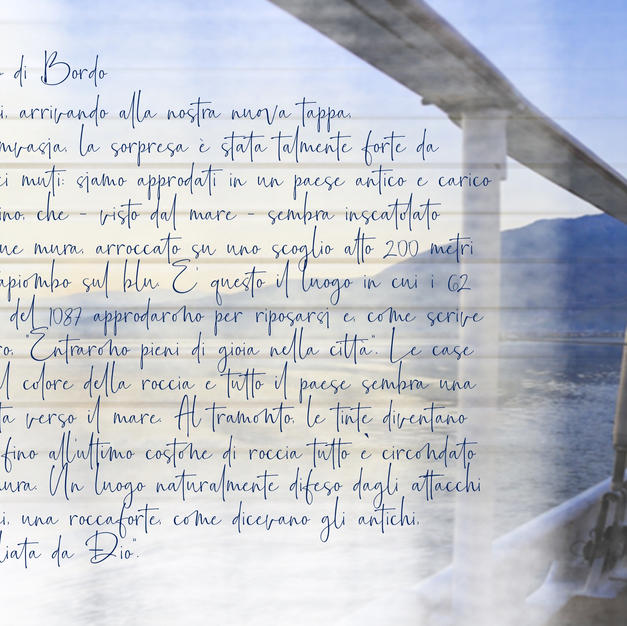 di Bordo
arrivando alla nostra nuova tappa,
la sorpresa è stata talmente forte da
muti: siamo approdati in un paese antico e carico
che - visto dal mare - sembra inscatolato
mura, arroccato su uno scoglio alto 200 metri
sul blu. E' questo il luogo in cui i 62
del 1087 approdarono per riposarsi e, come scrive
"Entrarono pieni di gioia nella città". Le case
colore della roccia e tutto il paese sembra una
verso il mare. Al tramonto, le tinte diventano
fino all'ultimo costone di roccia tutto è circondato
Un luogo naturalmente difeso dagli attacchi
una roccaforte, come dicevano gli antichi,
da Dio".